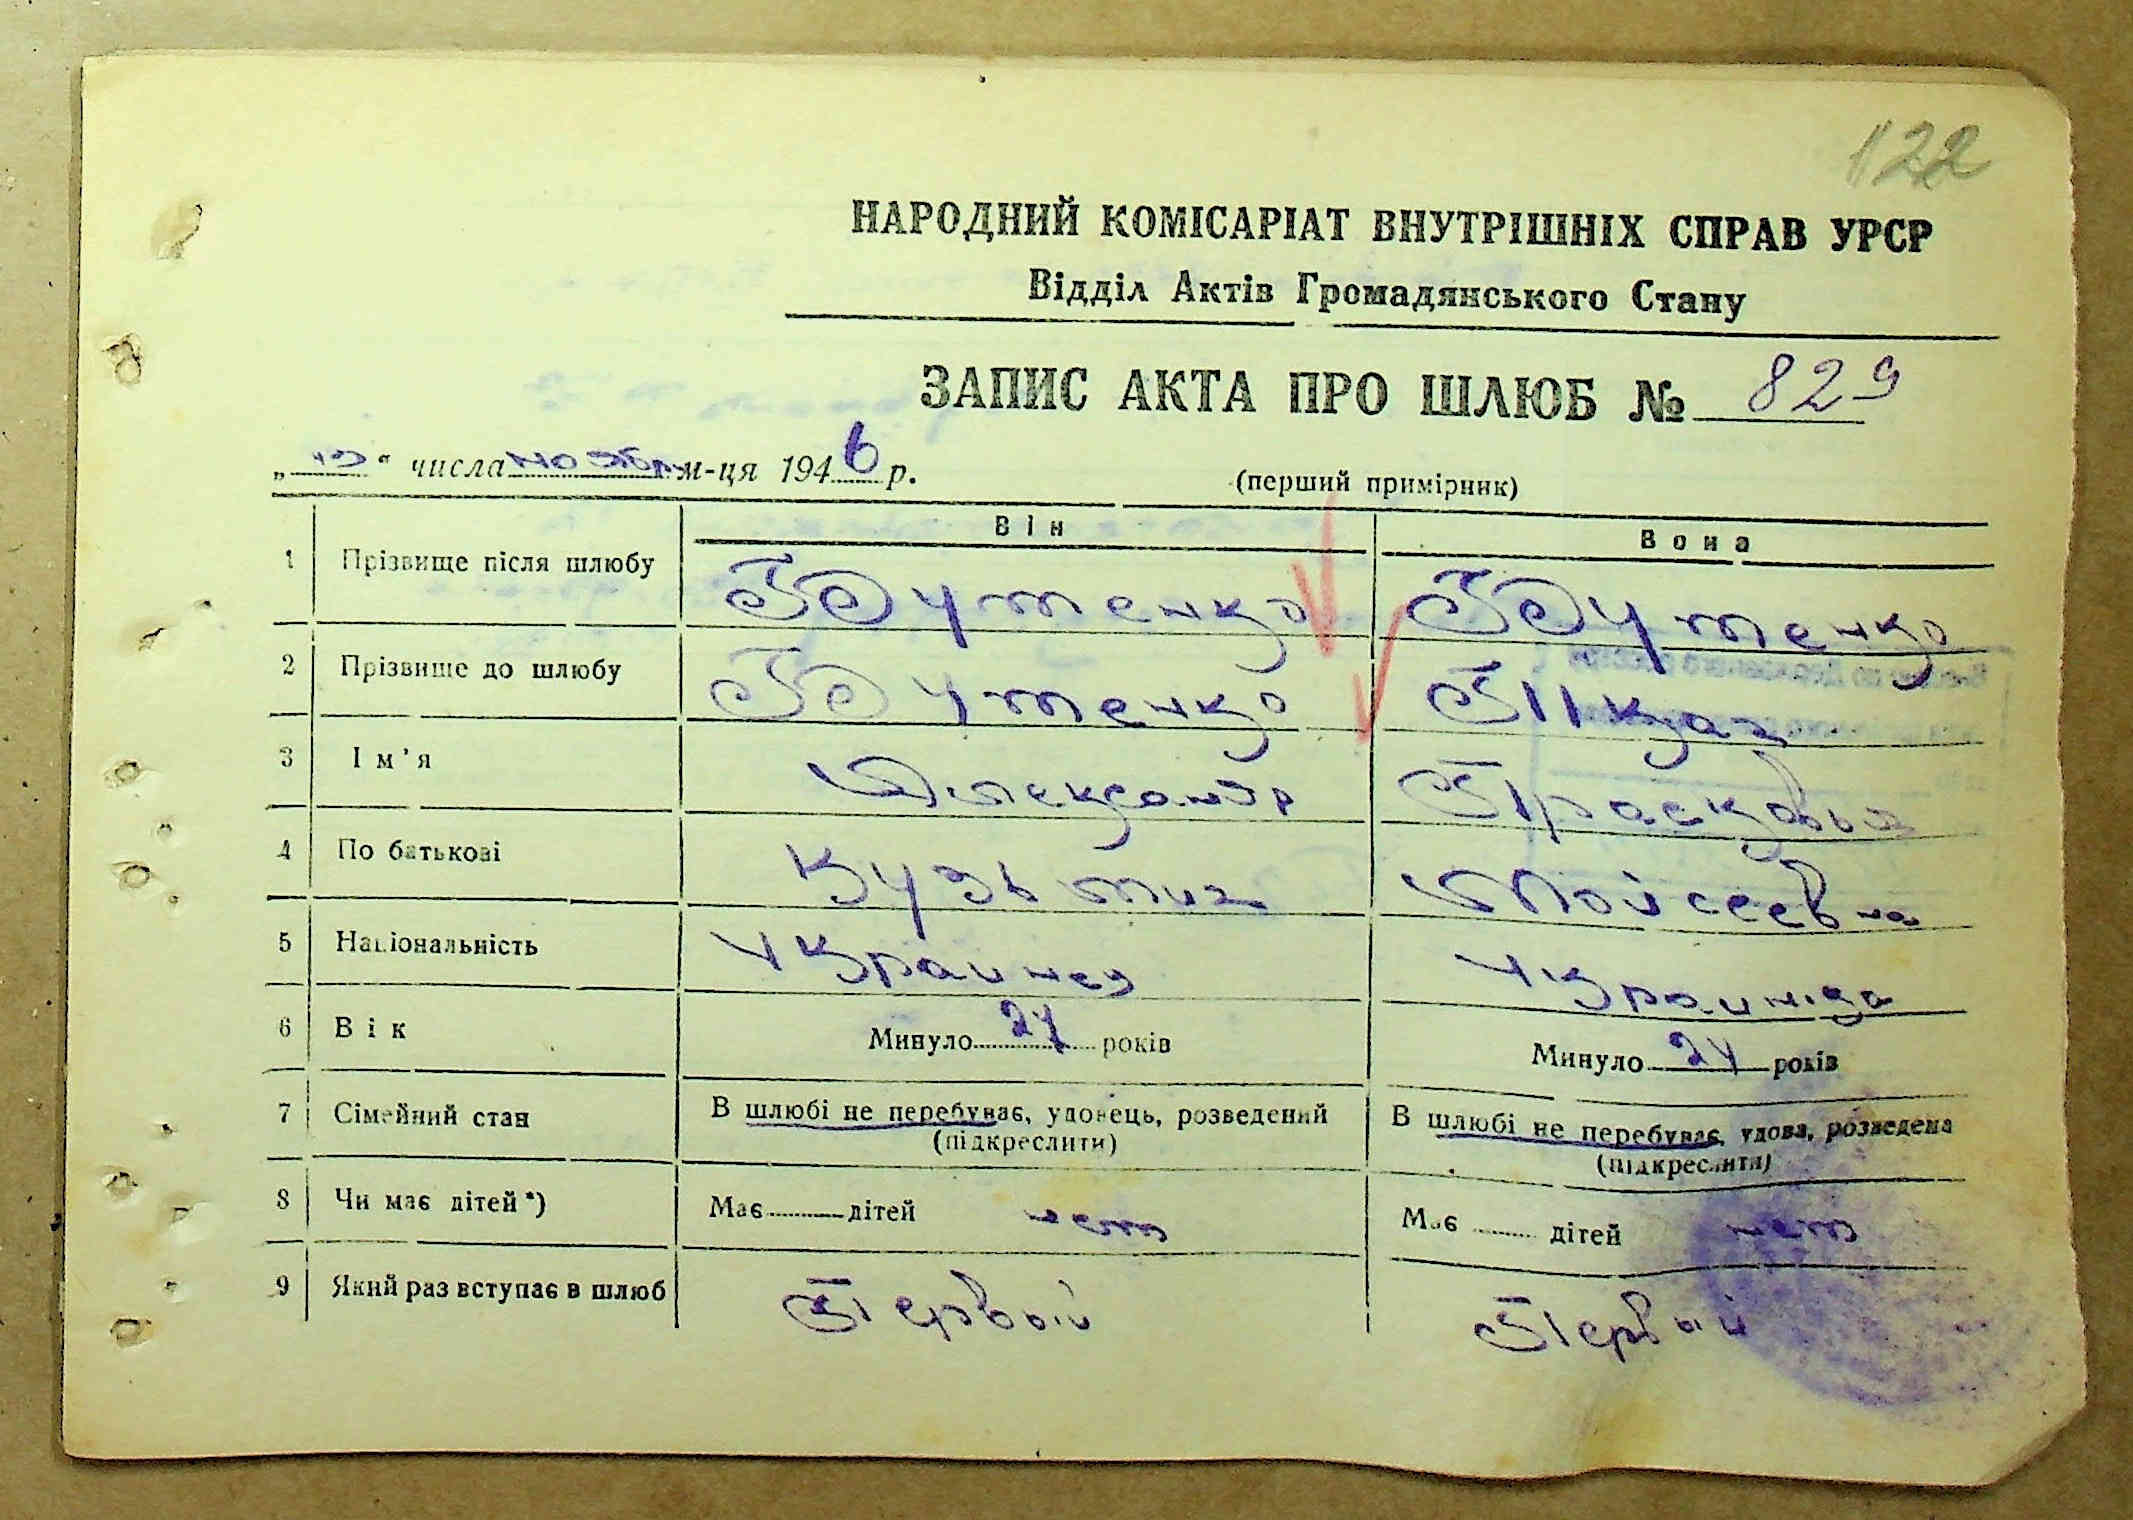 122
НАРОДНИЙ КОМІСАРІАТ ВНУТРІШНІХ СПРАВ УРСР
Відділ Актів Громадянського Стану
ЗАПИС АКТА ПРО ШЛЮБ № 829
" " числа ноября м-ця 1946 р. (перший примірник)
Він Вона
1 Прізвище після шлюбу Гутенко Гутенко
2 Прізвище до шлюбу Гутенко Ткач
3 Ім'я Александр Прасковья
4 По батькові Кузьмич Мойсеевна
5 Національність Украинец Украинка
6 Вік Минуло 27 років Минуло 24 років
7 Сімейний стан В шлюбі не перебуває, удовець, розведений В шлюбі не перебуває, удова, розведена
(підкреслити) (підкреслити)
8 Чи має дітей *) Має дітей нет Має дітей нет
9 Який раз вступає в шлюб Первый Первый